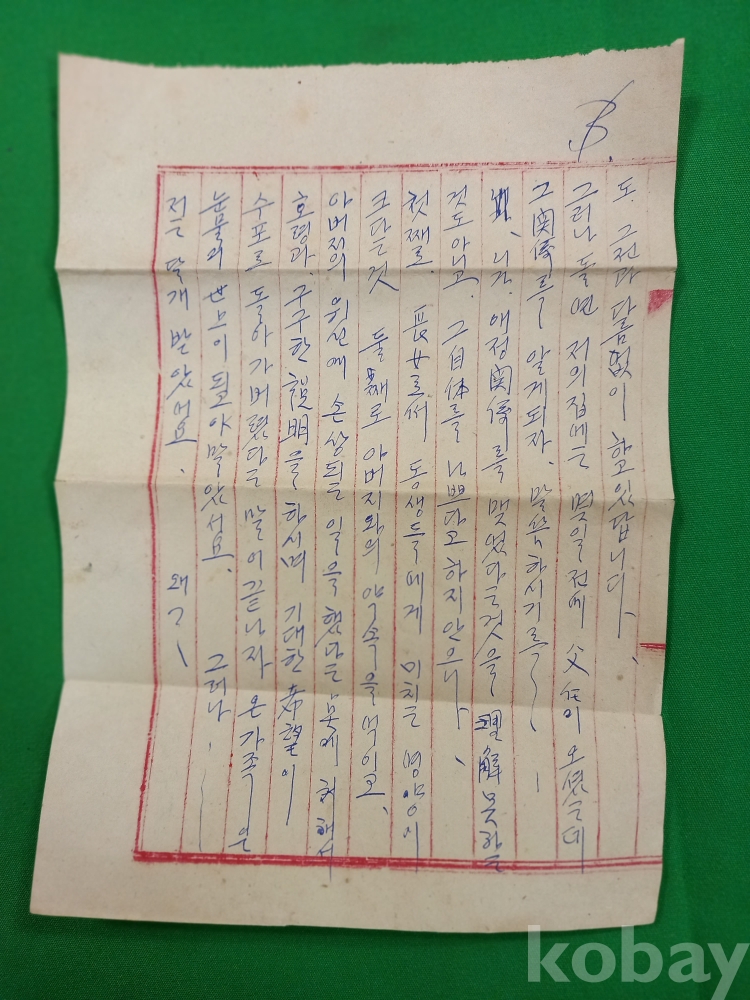 도 그전과 다름없이 하고있답니다.
그러나 돌연 저의집에는 몇일전에 父任이 오셨는데
그 関係를 알게되자. 말씀하시기를 ~ ~
니가. 애정関係를 맺었다는것을 理解못하는
것도아니고. 그 自体를 나쁘다고 하지안으나、
첫째로. 長女로써 동생들에게 미치는 영향이
크다는것 둘째로 아버지와의 약속을 먹이고、
아버지의 위신에 손상되는 일을 했다는 에 처해서
호령과. 구구한 說明을 하시며 기대한 希望이
수포로 돌아가버렸다는 말이 끝나자 온가족은
눈물의 世上이 되고야 말았서요. 그러나 . ~
저는 달개 받았어요. 왜? ~
kobay